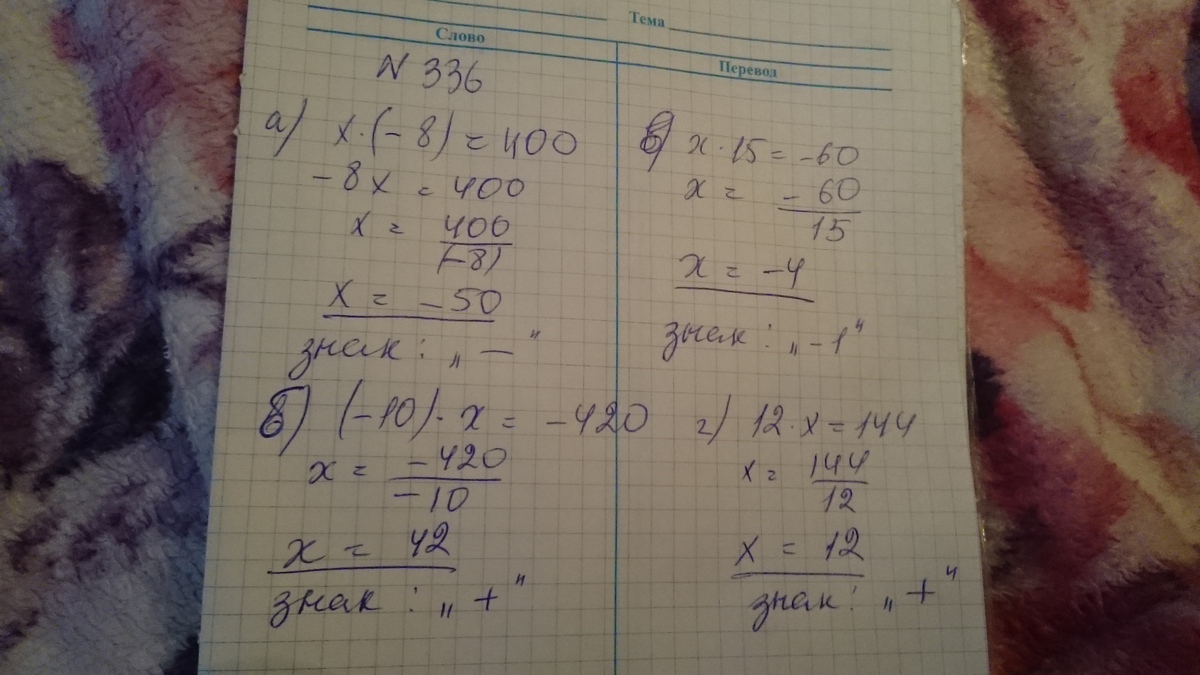 Тема
Слово
Перевод
N 336
а) x·(-8) = 400
-8x = 400
x = 400
(-8)
x = -50
знак: „ — "
x·15 = -60
x = -60
15
x = -4
знак: „ -1 "
(-10)·x = -420
x = -420
-10
x = 42
знак: „ + "
г) 12·x = 144
x = 144
12
x = 12
знак: „ + "